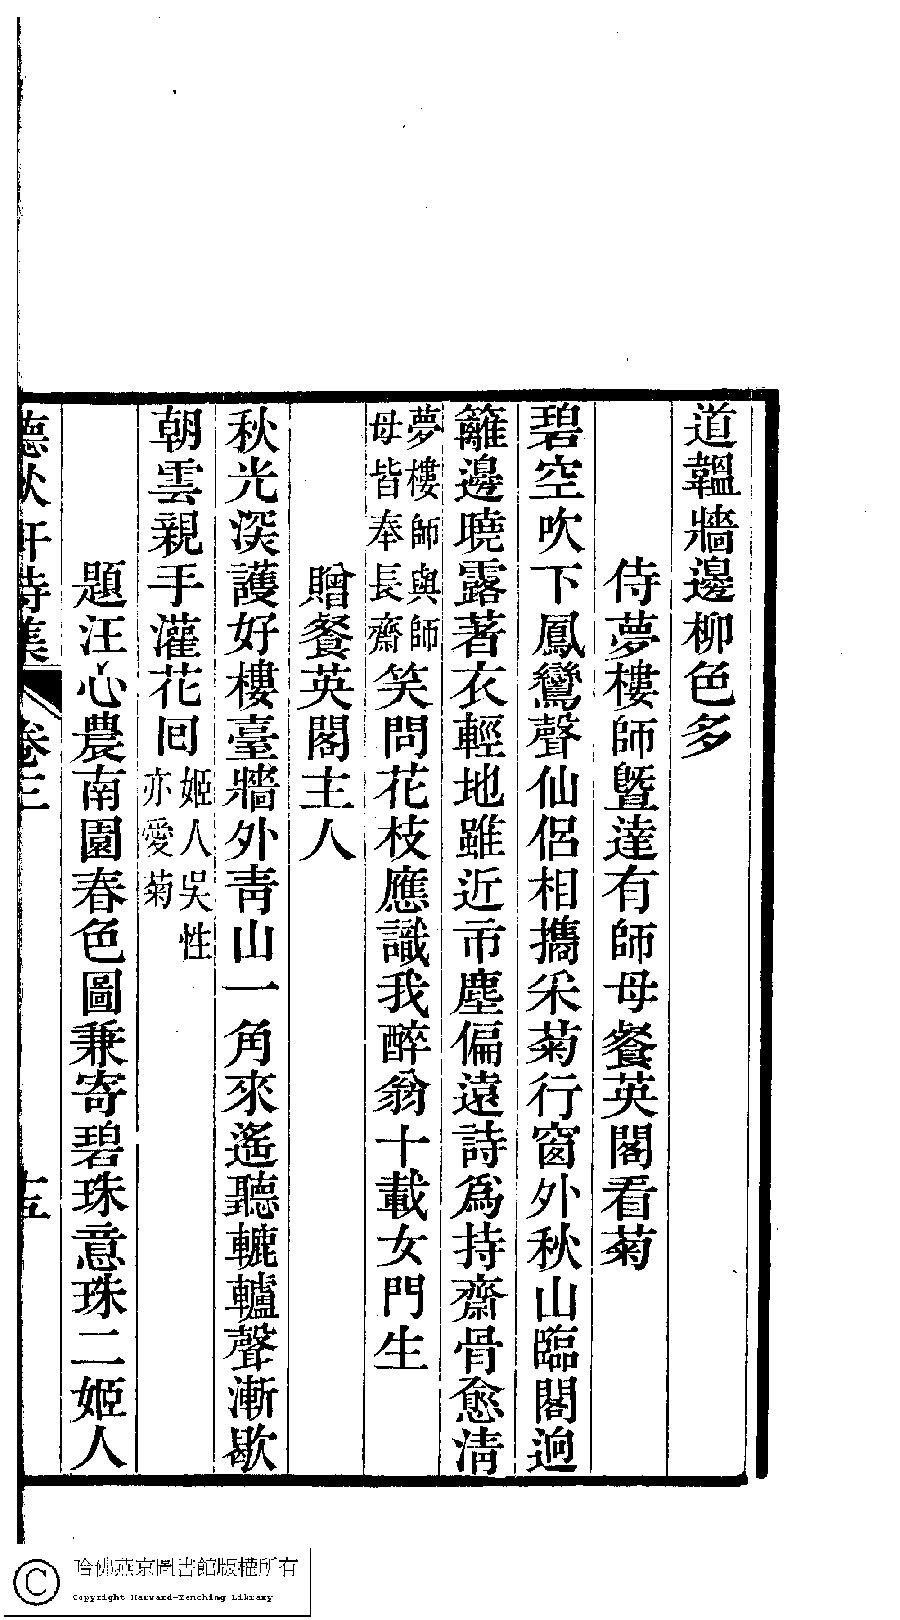 道韞牆邊柳色多
侍夢樓師曁達有師母餐英閣看菊
碧空吹下鳳鸞聲仙侶相攜采菊行窗外秋山臨閣逈
籬邊曉露著衣輕地雖近帀塵偏遠詩爲持齋骨愈清
夢樓師與師
母皆奉長齋
笑問花枝應識我醉翁十載女門生
贈餐英閣主人
秋光深護好樓臺牆外靑山一角來遙聽轆轤聲漸歇
朝雲親手灌花囘
姬人吳性
亦愛菊
題汪心農南園春色圖兼寄碧珠意珠二姬人
聽秋軒詩集 卷三 十五
哈佛燕京圖書館版權所有
Copyright Harvard-Yenching Library